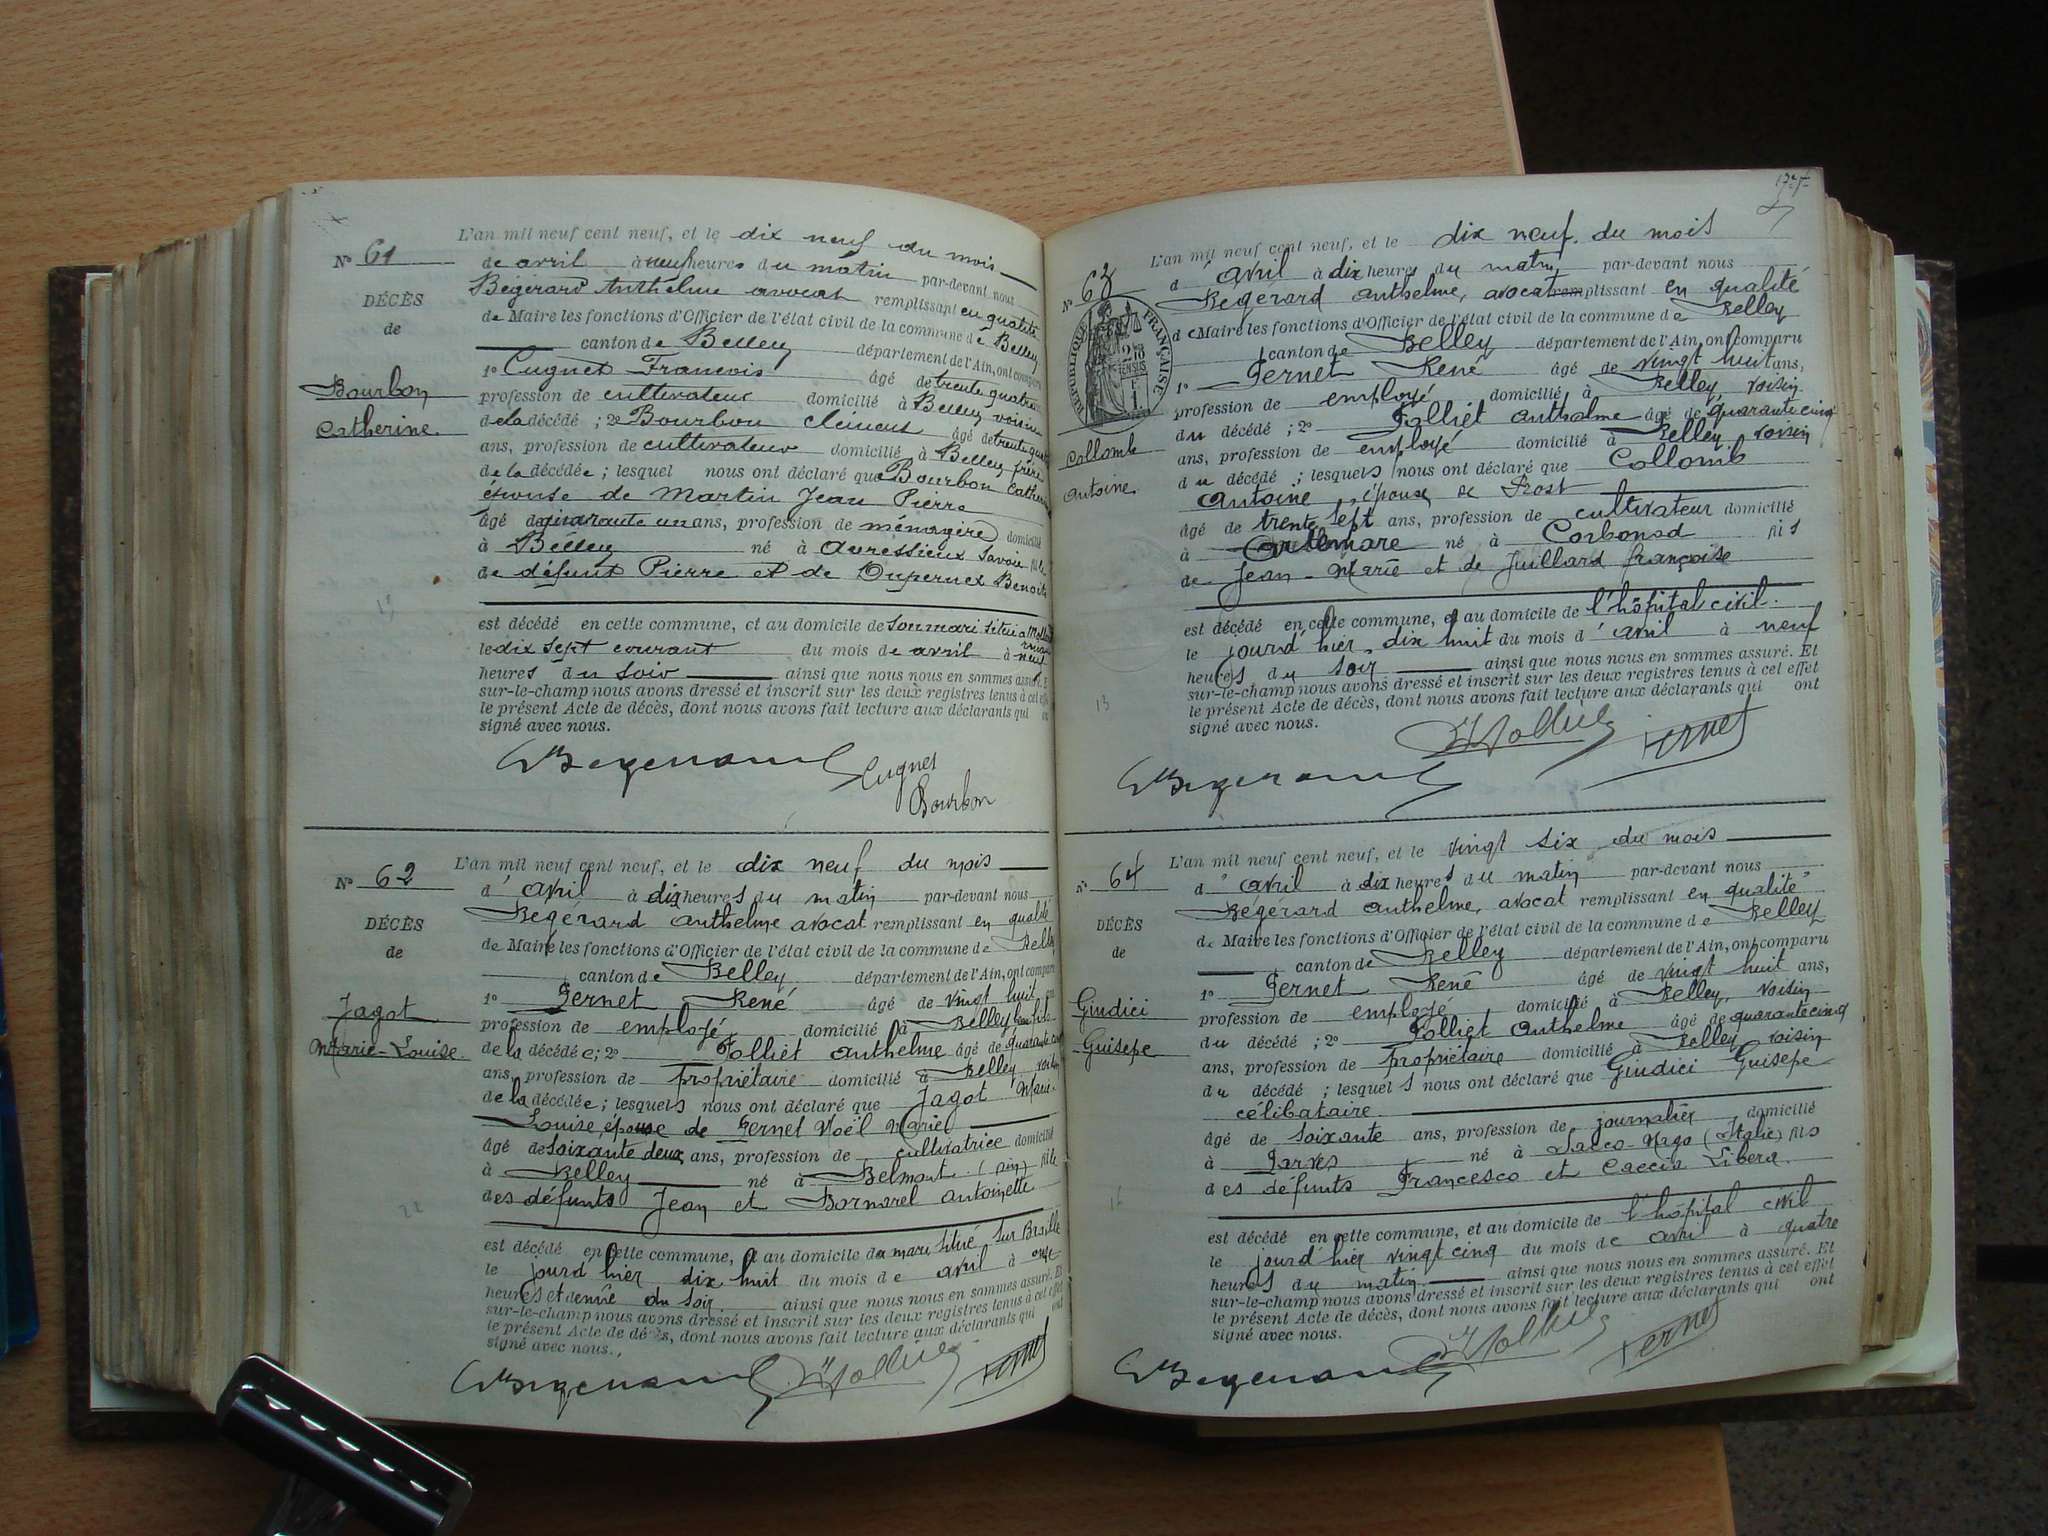 L'an mil neuf cent neuf, et le dix neuf du mois
N° 61
de avril à neuf heures du matin par-devant nous
Bégérard Anthelme avocat remplissant en qualité
DÉCÈS
de Maire les fonctions d'Officier de l'état civil de la commune de Belley
de
canton de Belley département de l'Ain, ont comparu
1° Cugnet Francois âgé de trente quatre
Bourbon
profession de cultivateur domicilié à Belley voisin
Catherine
de la décédé ; 2° Bourbon Clément âgé de trente
ans, profession de cultivateur domicilié à Belley frère
de la décédée ; lesquel nous ont déclaré que Bourbon Catherine
épouse de Martin Jean Pierre
âgé de quarante un ans, profession de ménagère domicilié
à Belley né à Avressieux Savoie fille
de défunt Pierre et de Dupernex Benoite
est décédé en cette commune, et au domicile de son mari situé à
le dix sept courant du mois de avril à neuf
heures du soir ainsi que nous nous en sommes assuré. Et
sur-le-champ nous avons dressé et inscrit sur les deux registres tenus à cet effet
le présent Acte de décès, dont nous avons fait lecture aux déclarants qui ont
signé avec nous.
Begerard Cugnet
Bourbon
L'an mil neuf cent neuf, et le dix neuf du mois
N° 62
d' avril à dix heures du matin par-devant nous
Bégérard Anthelme avocat remplissant en qualité
DÉCÈS
de Maire les fonctions d'Officier de l'état civil de la commune de Belley
de
canton de Belley département de l'Ain, ont comparu
1° Fernet René âgé de vingt huit ans
Jagot
profession de employé domicilié à Belley
Marie-Louise
de la décédée; 2° Folliet Anthelme âgé de quarante cinq
ans, profession de propriétaire domicilié à Belley voisin
de la décédée ; lesquels nous ont déclaré que Jagot Marie-
Louise, épouse de Fernet Noël Mariel
âgé de soixante deux ans, profession de cultivatrice domicilié
à Belley né à Belmont (Ain) fille
des défunts Jean et Bornarel Antoinette
est décédé en cette commune, et au domicile du mari situé Sur Braille
le jourd'hier dix huit du mois de avril à onze
heures et demie du soir ainsi que nous nous en sommes assuré. Et
sur-le-champ nous avons dressé et inscrit sur les deux registres tenus à cet effet
le présent Acte de décès, dont nous avons fait lecture aux déclarants qui ont
signé avec nous.
Begerard Folliet Fernet
L'an mil neuf cent neuf, et le dix neuf du mois
N° 63
d' avril à dix heures du matin par-devant nous
Bégérard Anthelme, avocat remplissant en qualité
RÉPUBLIQUE FRANÇAISE
de Maire les fonctions d'Officier de l'état civil de la commune de Belley
canton de Belley département de l'Ain, ont comparu
1° Fernet René âgé de vingt huit ans,
profession de employé domicilié à Belley, voisin
du décédé ; 2° Folliet Anthelme âgé de quarante cinq
Collomb
ans, profession de employé domicilié à Belley voisin
Antoine
du décédé ; lesquels nous ont déclaré que Collomb
Antoine, époux de Prost
âgé de trente sept ans, profession de cultivateur domicilié
à Artemare né à Corbonod fils
de Jean-Marie et de Juillard françoise
est décédé en cette commune, et au domicile de l'hôpital civil.
le jourd'hier, dix huit du mois d' avril à neuf
heures du soir ainsi que nous nous en sommes assuré. Et
sur-le-champ nous avons dressé et inscrit sur les deux registres tenus à cet effet
13
le présent Acte de décès, dont nous avons fait lecture aux déclarants qui ont
signé avec nous.
Folliet Fernet
Begerard
L'an mil neuf cent neuf, et le vingt six du mois
N° 64
d' avril à dix heures du matin par-devant nous
Bégérard Anthelme, avocat remplissant en qualité
DÉCÈS
de Maire les fonctions d'Officier de l'état civil de la commune de Belley
de
canton de Belley département de l'Ain, ont comparu
1° Fernet René âgé de vingt huit ans,
Giudici
profession de employé domicilié à Belley, voisin
Guisepe
du décédé ; 2° Folliet Anthelme âgé de quarante cinq
ans, profession de propriétaire domicilié à Belley voisin
du décédé ; lesquels nous ont déclaré que Giudici Guisepe
célibataire
âgé de soixante ans, profession de journalier domicilié
à Parves né à (Italie) fils
des défunts Francesco et Caccia Libera
est décédé en cette commune, et au domicile de l'hôpital civil
le jourd'hier vingt cinq du mois de avril à quatre
heures du matin ainsi que nous nous en sommes assuré. Et
sur-le-champ nous avons dressé et inscrit sur les deux registres tenus à cet effet
le présent Acte de décès, dont nous avons fait lecture aux déclarants qui ont
signé avec nous.
Begerard Folliet Fernet